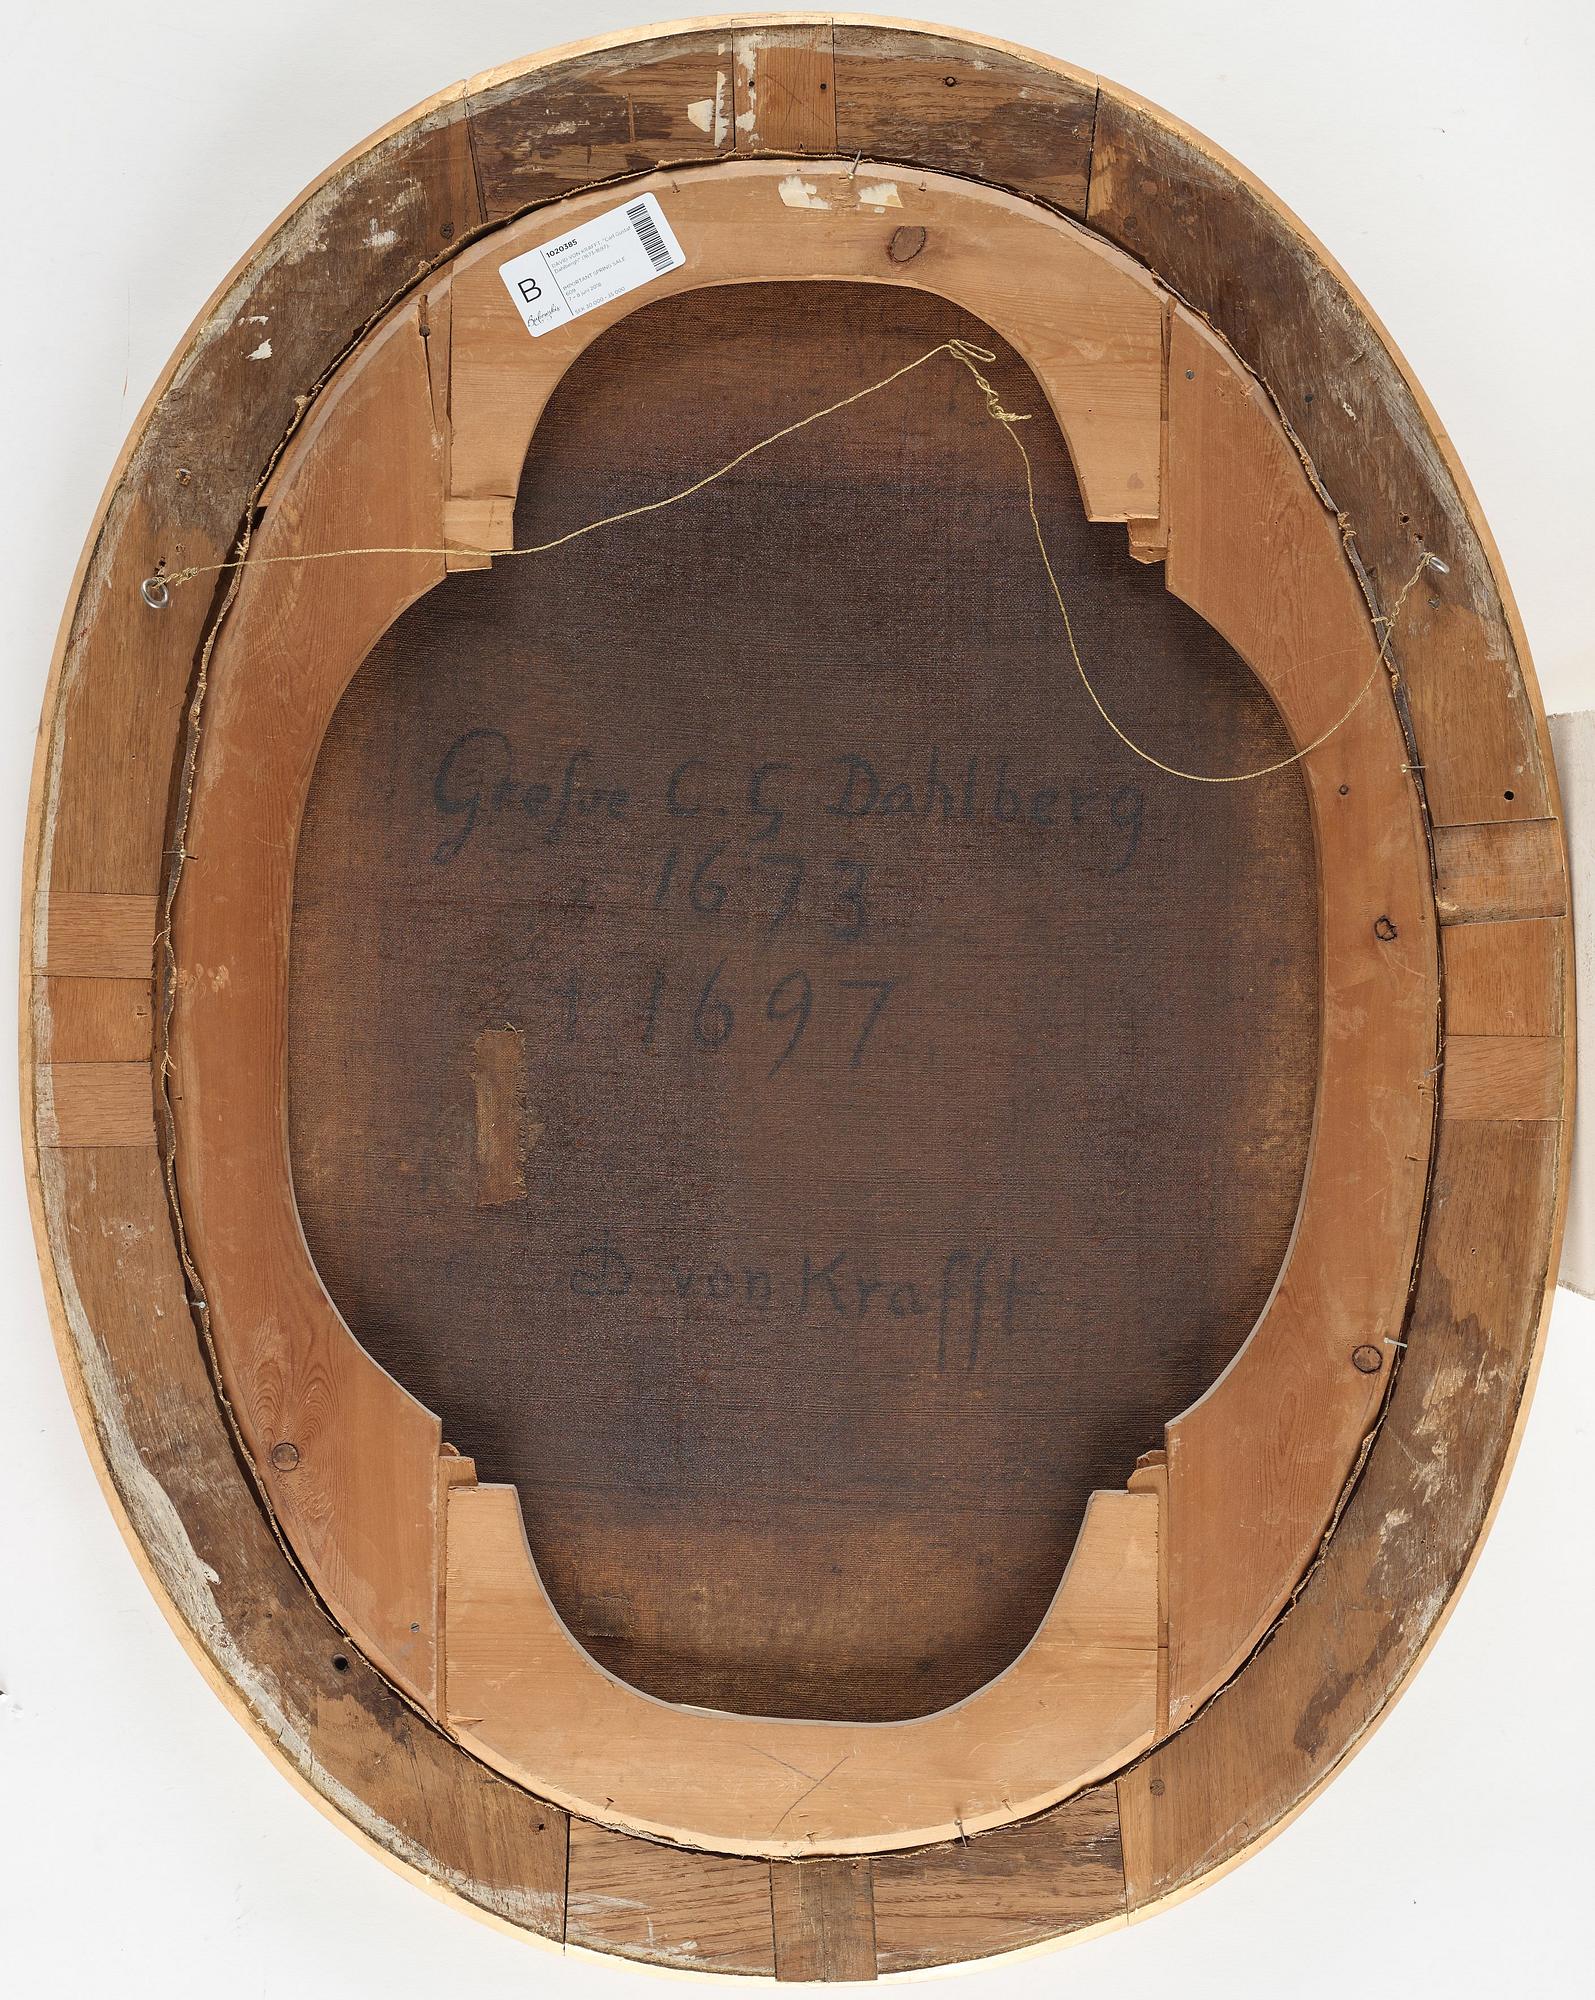 B
Bukowskis
1020385
DAVID VON KRAFFT. "Carl Gustaf
Dahlbergh" (1673-1697).
IMPORTANT SPRING SALE
609
7 - 8 juni 2018
SEK 30 000 - 35 000
Grefve C. G Dahlberg
+ 1673
† 1697
D. von Krafft